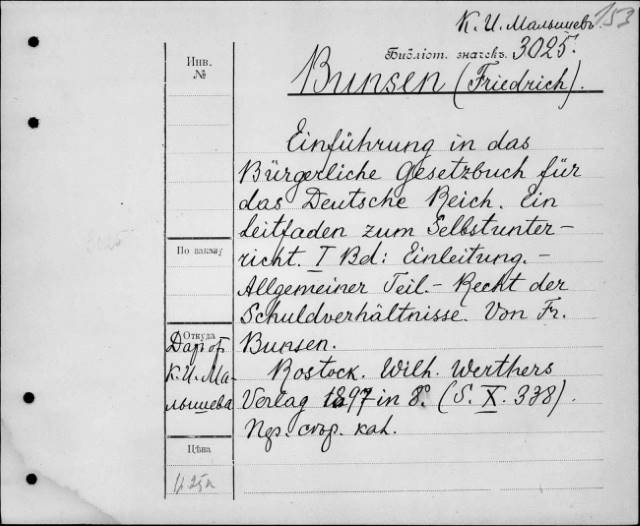 К. И. Малышевъ. 153
Библіот. значекъ. 3025.
Bunsen (Friedrich).
Инв. №
Einführung in das
Bürgerliche Gesetzbuch für
das Deutsche Reich. Ein
Leitfaden zum Selbstunter-
richt. I Bd: Einleitung. -
Allgemeiner Teil. - Recht der
Schuldverhältnisse. Von Fr.
Bunsen.
Rostock. Wilh. Werthers
Verlag 1897 in 8°. (S. X. 338).
По заказу
Откуда
Дар. от
К. И. Ма-
лышева
Цѣна